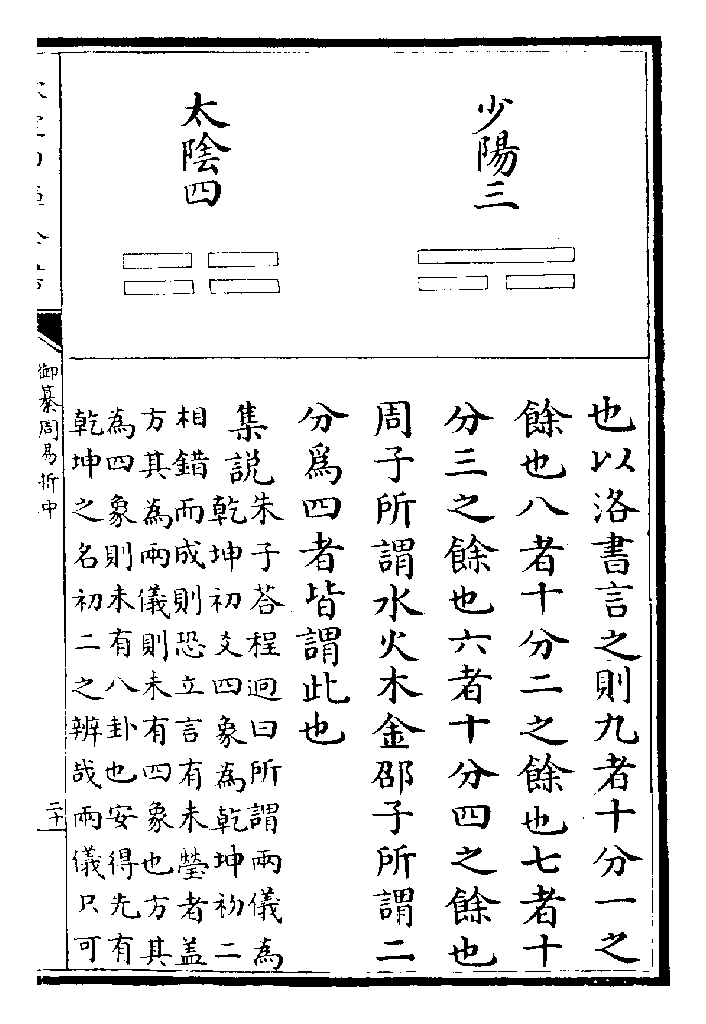 少陽三
太陰四
也以洛書言之則九者十分一之
餘也八者十分二之餘也七者十
分三之餘也六者十分四之餘也
周子所謂水火木金邵子所謂二
分爲四者皆謂此也
集說
朱子荅程迥曰所謂兩儀為
乾坤初爻四象為乾坤初二
相錯而成則恐立言有未瑩者盖
方其為兩儀則未有四象也方其
為四象則未有八卦也安得先有
乾坤之名初二之辨哉兩儀只可
御纂周易折中